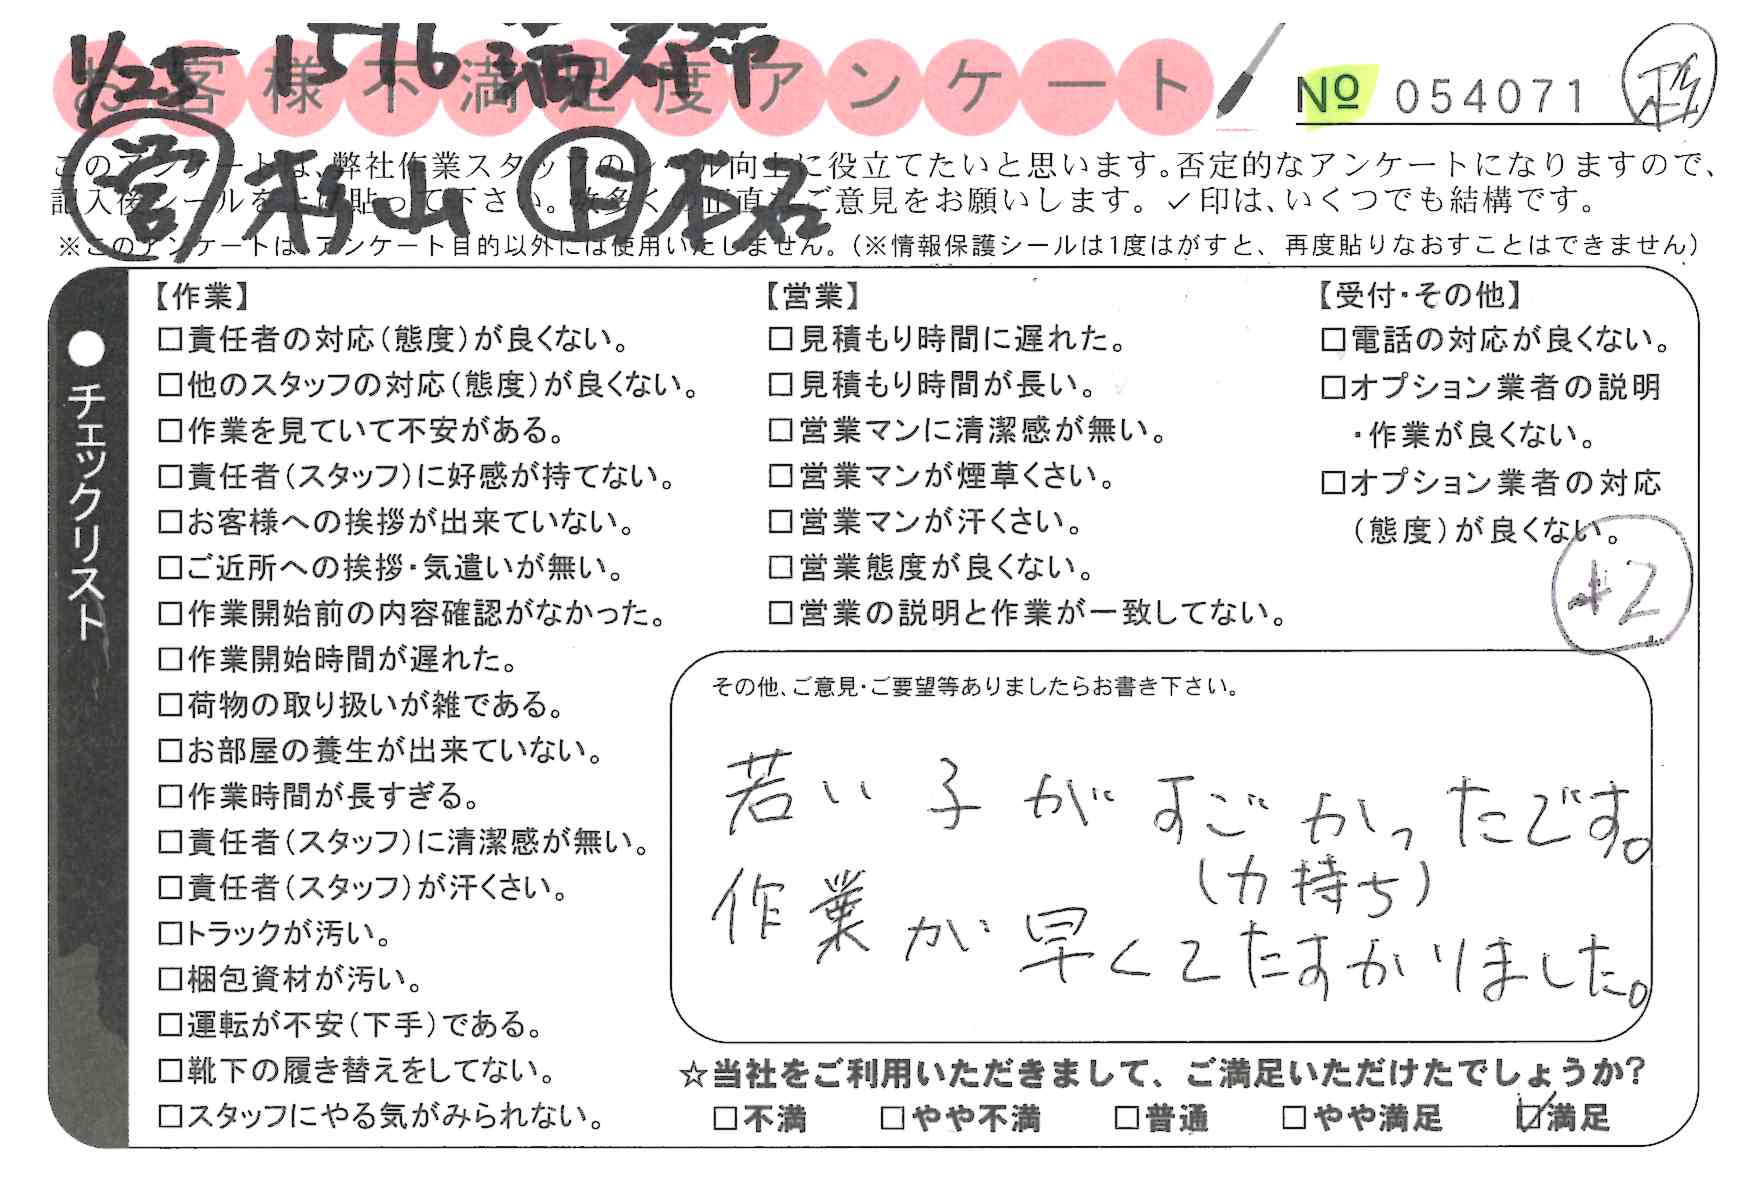 1/25 1576 蒲郡
お客様不満足度アンケート
№ 054071
営 杉山 上 本名
このアンケートは、弊社作業スタッフのレベル向上に役立てたいと思います。否定的なアンケートになりますので、
記入後シールを上に貼って下さい。数多くの正直なご意見をお願いします。✓印は、いくつでも結構です。
※このアンケートは、アンケート目的以外には使用いたしません。(※情報保護シールは1度はがすと、再度貼りなおすことはできません)
●チェックリスト
【作業】
□責任者の対応(態度)が良くない。
□他のスタッフの対応(態度)が良くない。
□作業を見ていて不安がある。
□責任者(スタッフ)に好感が持てない。
□お客様への挨拶が出来ていない。
□ご近所への挨拶・気遣いが無い。
□作業開始前の内容確認がなかった。
□作業開始時間が遅れた。
□荷物の取り扱いが雑である。
□お部屋の養生が出来ていない。
□作業時間が長すぎる。
□責任者(スタッフ)に清潔感が無い。
□責任者(スタッフ)が汗くさい。
□トラックが汚い。
□梱包資材が汚い。
□運転が不安(下手)である。
□靴下の履き替えをしてない。
□スタッフにやる気がみられない。
【営業】
□見積もり時間に遅れた。
□見積もり時間が長い。
□営業マンに清潔感が無い。
□営業マンが煙草くさい。
□営業マンが汗くさい。
□営業態度が良くない。
□営業の説明と作業が一致してない。
【受付・その他】
□電話の対応が良くない。
□オプション業者の説明
・作業が良くない。
□オプション業者の対応
(態度)が良くない。
+2
その他、ご意見・ご要望等ありましたらお書き下さい。
若い子がすごかったです。
(力持ち)
作業が早くてたすかりました。
☆当社をご利用いただきまして、ご満足いただけたでしょうか?
□不満 □やや不満 □普通 □やや満足 ☑満足